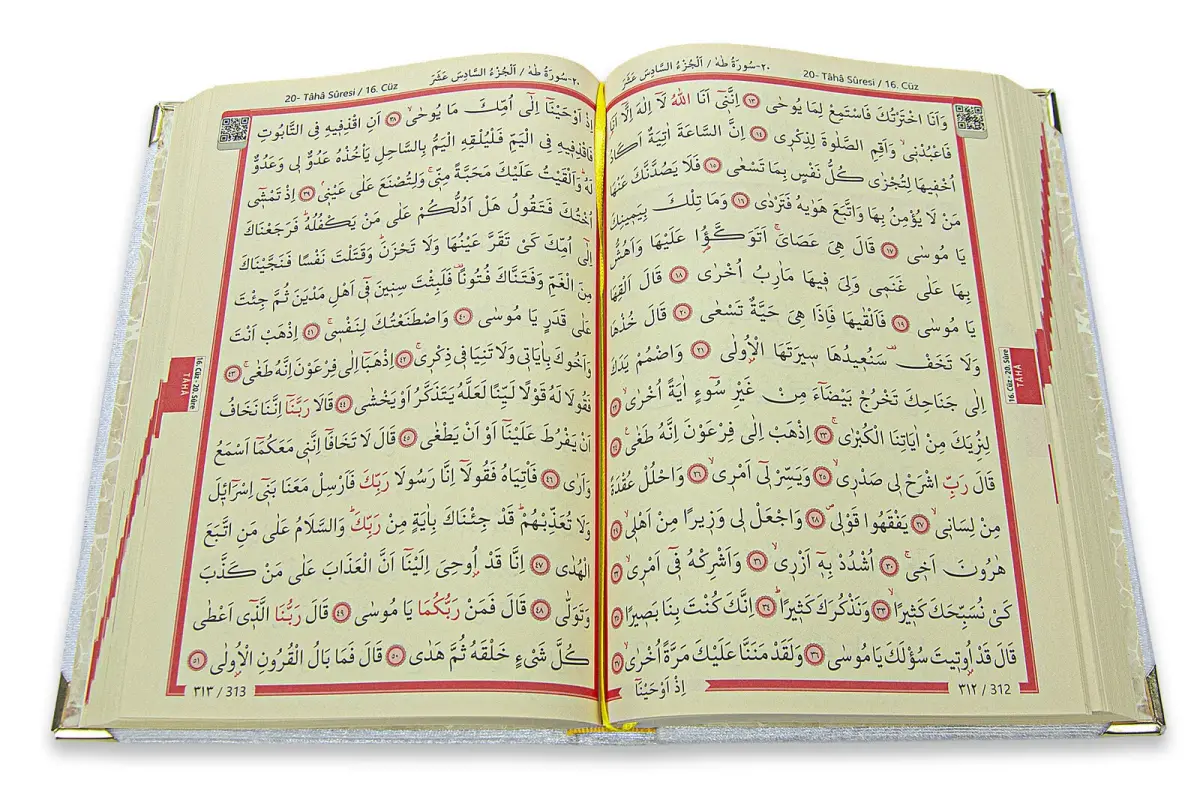 ٢٠-سُورَةُ طٰهٰ / اَلْجُزْءُ السَّادِسَ عَشَرَ
20- Tâhâ Sûresi / 16. Cüz
وَاَنَا اخْتَرْتُكَ فَاسْتَمِعْ لِمَا يُوحٰى ﴿١٣﴾ اِنَّنٖٓي اَنَا اللّٰهُ لَٓا اِلٰهَ اِلَّٓا اَنَا۬
فَاعْبُدْنٖيۙ وَاَقِمِ الصَّلٰوةَ لِذِكْرٖي ﴿١٤﴾ اِنَّ السَّاعَةَ اٰتِيَةٌ اَكَادُ
اُخْفٖيهَا لِتُجْزٰى كُلُّ نَفْسٍ بِمَا تَسْعٰى ﴿١٥﴾ فَلَا يَصُدَّنَّكَ عَنْهَا
مَنْ لَا يُؤْمِنُ بِهَا وَاتَّبَعَ هَوٰيهُ فَتَرْدٰى ﴿١٦﴾ وَمَا تِلْكَ بِيَمٖينِكَ
يَا مُوسٰى ﴿١٧﴾ قَالَ هِيَ عَصَايَۚ اَتَوَكَّؤُ۬ا عَلَيْهَا وَاَهُشُّ
بِهَا عَلٰى غَنَمٖي وَلِيَ فٖيهَا مَاٰرِبُ اُخْرٰى ﴿١٨﴾ قَالَ اَلْقِهَا
يَا مُوسٰى ﴿١٩﴾ فَاَلْقٰيهَا فَاِذَا هِيَ حَيَّةٌ تَسْعٰى ﴿٢٠﴾ قَالَ خُذْهَا
وَلَا تَخَفْ۠ سَنُعٖيدُهَا سٖيرَتَهَا الْاُو۫لٰى ﴿٢١﴾ وَاضْمُمْ يَدَكَ
اِلٰى جَنَاحِكَ تَخْرُجْ بَيْضَٓاءَ مِنْ غَيْرِ سُٓوءٍ اٰيَةً اُخْرٰىۙ ﴿٢٢﴾
لِنُرِيَكَ مِنْ اٰيَاتِنَا الْكُبْرٰىۚ ﴿٢٣﴾ اِذْهَبْ اِلٰى فِرْعَوْنَ اِنَّهُ طَغٰى۟ ﴿٢٤﴾
قَالَ رَبِّ اشْرَحْ لٖي صَدْرٖيۙ ﴿٢٥﴾ وَيَسِّرْ لٖٓي اَمْرٖيۙ ﴿٢٦﴾ وَاحْلُلْ عُقْدَةً
مِنْ لِسَانٖيۙ ﴿٢٧﴾ يَفْقَهُوا قَوْلٖيۖ ﴿٢٨﴾ وَاجْعَلْ لٖي وَزٖيرًا مِنْ اَهْلٖيۙ ﴿٢٩﴾
هٰرُونَ اَخٖيۚ ﴿٣٠﴾ اُشْدُدْ بِهٖٓ اَزْرٖيۙ ﴿٣١﴾ وَاَشْرِكْهُ فٖٓي اَمْرٖيۙ ﴿٣٢﴾
كَيْ نُسَبِّحَكَ كَثٖيرًاۙ ﴿٣٣﴾ وَنَذْكُرَكَ كَثٖيرًاۜ ﴿٣٤﴾ اِنَّكَ كُنْتَ بِنَا بَصٖيرًا ﴿٣٥﴾
قَالَ قَدْ اُو۫تٖيتَ سُؤْلَكَ يَا مُوسٰى ﴿٣٦﴾ وَلَقَدْ مَنَنَّا عَلَيْكَ مَرَّةً اُخْرٰىۙ ﴿٣٧﴾
اِذْ اَوْحَيْنَٓا
٣١٢ / 312
16.Cüz - 20.Sûre
TÂHÂ
20- Tâhâ Sûresi / 16. Cüz
٢٠-سُورَةُ طٰهٰ / اَلْجُزْءُ السَّادِسَ عَشَرَ
اِذْ اَوْحَيْنَٓا اِلٰٓى اُمِّكَ مَا يُوحٰىۙ ﴿٣٨﴾ اَنِ اقْذِفٖيهِ فِي التَّابُوتِ
فَاقْذِفٖيهِ فِي الْيَمِّ فَلْيُلْقِهِ الْيَمُّ بِالسَّاحِلِ يَأْخُذْهُ عَدُوٌّ لٖي وَعَدُوٌّ
لَهُۜ وَاَلْقَيْتُ عَلَيْكَ مَحَبَّةً مِنّٖيۚ وَلِتُصْنَعَ عَلٰى عَيْنٖيۢ ﴿٣٩﴾ اِذْ تَمْشٖٓي
اُخْتُكَ فَتَقُولُ هَلْ اَدُلُّكُمْ عَلٰى مَنْ يَكْفُلُهُۜ فَرَجَعْنَاكَ
اِلٰٓى اُمِّكَ كَيْ تَقَرَّ عَيْنُهَا وَلَا تَحْزَنَۜ وَقَتَلْتَ نَفْسًا فَنَجَّيْنَاكَ
مِنَ الْغَمِّ وَفَتَنَّاكَ فُتُونًا۠ فَلَبِثْتَ سِنٖينَ فٖٓي اَهْلِ مَدْيَنَ ثُمَّ جِئْتَ
عَلٰى قَدَرٍ يَا مُوسٰى ﴿٤٠﴾ وَاصْطَنَعْتُكَ لِنَفْسٖيۚ ﴿٤١﴾ اِذْهَبْ اَنْتَ
وَاَخُوكَ بِاٰيَاتٖي وَلَا تَنِيَا فٖي ذِكْرٖيۚ ﴿٤٢﴾ اِذْهَبَٓا اِلٰى فِرْعَوْنَ اِنَّهُ طَغٰىۚ ﴿٤٣﴾
فَقُولَا لَهُ قَوْلًا لَيِّنًا لَعَلَّهُ يَتَذَكَّرُ اَوْ يَخْشٰى ﴿٤٤﴾ قَالَا رَبَّنَٓا اِنَّنَا نَخَافُ
اَنْ يَفْرُطَ عَلَيْنَٓا اَوْ اَنْ يَطْغٰى ﴿٤٥﴾ قَالَ لَا تَخَافَٓا اِنَّنٖي مَعَكُمَٓا اَسْمَعُ
وَاَرٰى ﴿٤٦﴾ فَأْتِيَاهُ فَقُولَٓا اِنَّا رَسُولَا رَبِّكَ فَاَرْسِلْ مَعَنَا بَنٖٓي اِسْرَٓائٖلَ
وَلَا تُعَذِّبْهُمْۜ قَدْ جِئْنَاكَ بِاٰيَةٍ مِنْ رَبِّكَۜ وَالسَّلَامُ عَلٰى مَنِ اتَّبَعَ
الْهُدٰى ﴿٤٧﴾ اِنَّا قَدْ اُو۫حِيَ اِلَيْنَٓا اَنَّ الْعَذَابَ عَلٰى مَنْ كَذَّبَ
وَتَوَلّٰى ﴿٤٨﴾ قَالَ فَمَنْ رَبُّكُمَا يَا مُوسٰى ﴿٤٩﴾ قَالَ رَبُّنَا الَّذٖٓي اَعْطٰى
كُلَّ شَيْءٍ خَلْقَهُ ثُمَّ هَدٰى ﴿٥٠﴾ قَالَ فَمَا بَالُ الْقُرُونِ الْاُو۫لٰى ﴿٥١﴾
٣١٣ / 313
16.Cüz - 20.Sûre
TÂHÂ